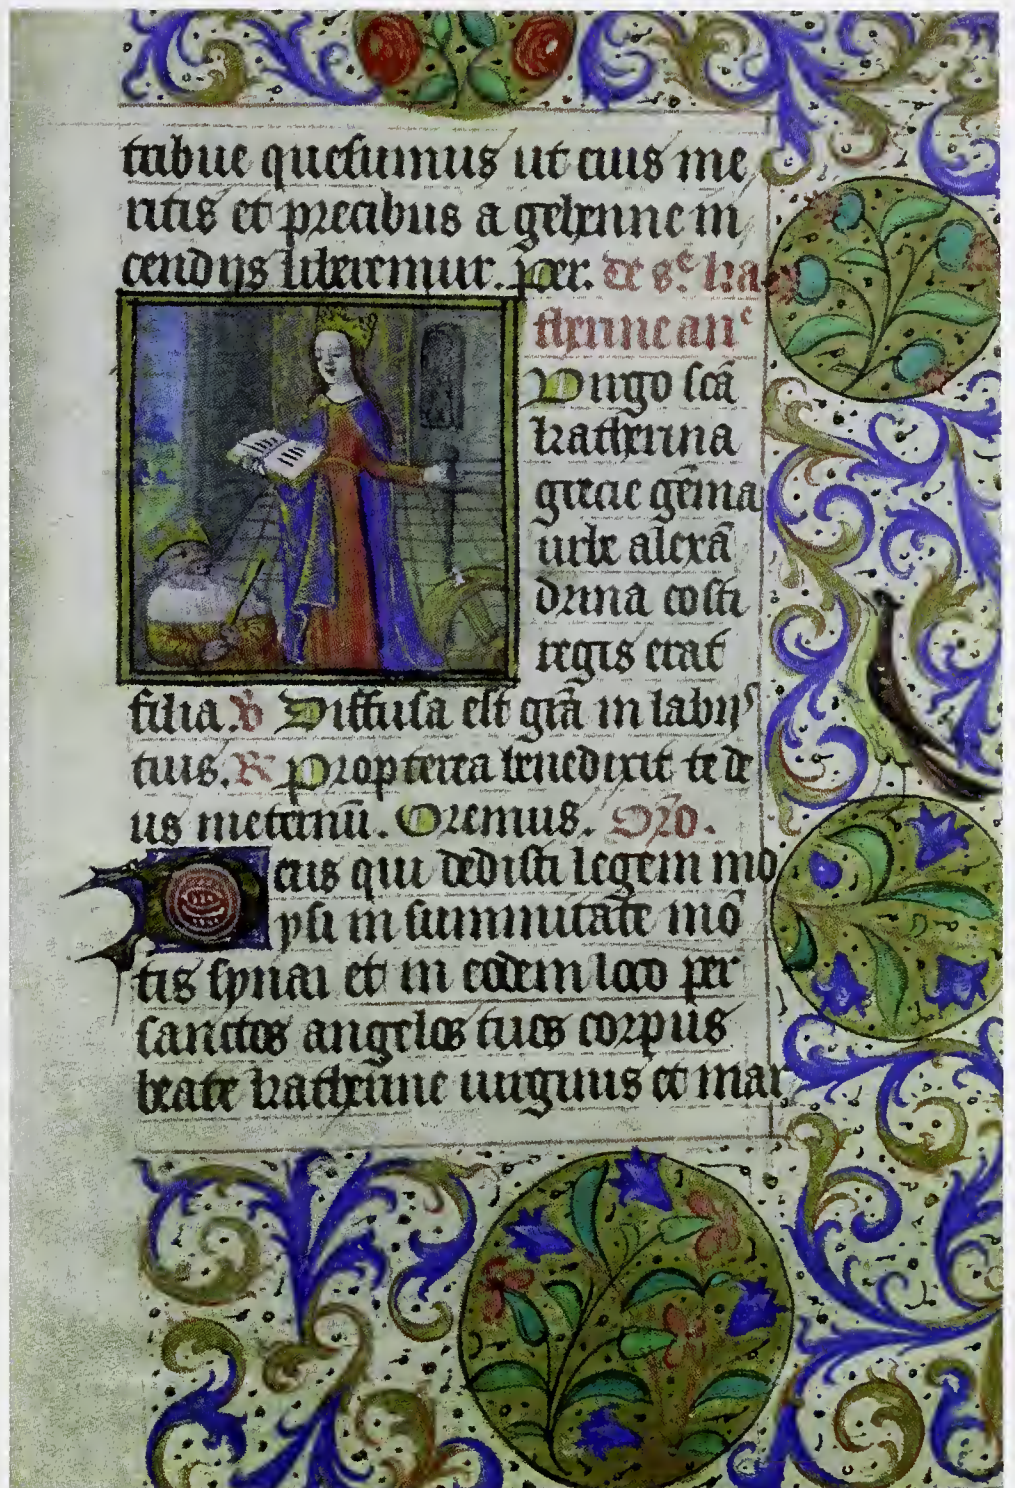 tribue quesumus ut eius me
ritis et precibus a gehenne in
cendijs liberemur. per. de sc̄e ka
therine anͨ
Virgo scā
katherina
grecie gēma
urbe alexā
drina costi
regis erat
filia ℣ Diffusa est grā in labijs
tuis. ℟ Propterea benedixit te de
us in eternū. Oremus. Orō.
Deus qui dedisti legem mo
ysi in summitate mō
tis synai et in eodem loco per
sanctos angelos tuos corpus
beate katherine uirginis et mar